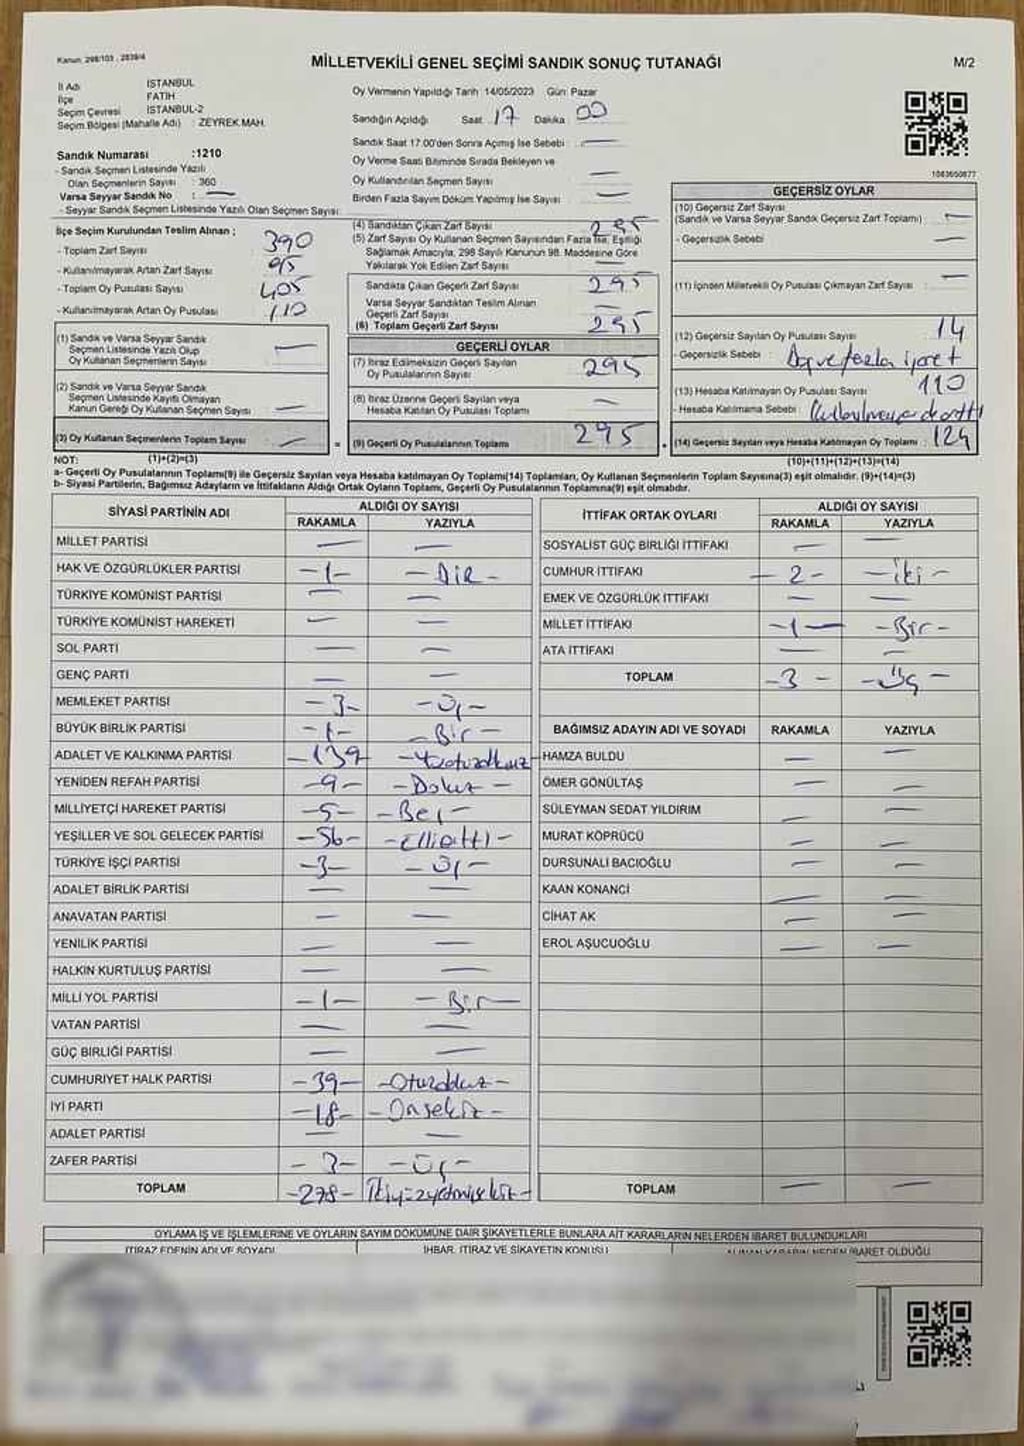 Kanun: 298/103 , 2839/4
MİLLETVEKİLİ GENEL SEÇİMİ SANDIK SONUÇ TUTANAĞI
M/2
İl Adı İSTANBUL
İlçe FATİH
Seçim Çevresi İSTANBUL-2
Seçim Bölgesi (Mahalle Adı) : ZEYREK MAH.
Sandık Numarası :1210
- Sandık Seçmen Listesinde Yazılı
Olan Seçmenlerin Sayısı : 360
Varsa Seyyar Sandık No : —
- Seyyar Sandık Seçmen Listesinde Yazılı Olan Seçmen Sayısı:
Oy Vermenin Yapıldığı Tarih :14/05/2023 Gün: Pazar
Sandığın Açıldığı Saat: 17 Dakika : 00
Sandık Saat 17.00'den Sonra Açılmış İse Sebebi : —
Oy Verme Saati Bitiminde Sırada Bekleyen ve
Oy Kullandırılan Seçmen Sayısı —
Birden Fazla Sayım Döküm Yapılmış İse Sayısı : —
1083650877
İlçe Seçim Kurulundan Teslim Alınan ;
- Toplam Zarf Sayısı 390
- Kullanılmayarak Artan Zarf Sayısı 95
- Toplam Oy Pusulası Sayısı 405
- Kullanılmayarak Artan Oy Pusulası 110
(1) Sandık ve Varsa Seyyar Sandık
Seçmen Listesinde Yazılı Olup
Oy Kullanan Seçmenlerin Sayısı —
(2) Sandık ve Varsa Seyyar Sandık
Seçmen Listesinde Kayıtlı Olmayan
Kanun Gereği Oy Kullanan Seçmen Sayısı —
(3) Oy Kullanan Seçmenlerin Toplam Sayısı —
(1)+(2)=(3)
(4) Sandıktan Çıkan Zarf Sayısı 295
(5) Zarf Sayısı Oy Kullanan Seçmen Sayısından Fazla İse, Eşitliği
Sağlamak Amacıyla, 298 Sayılı Kanunun 98. Maddesine Göre
Yakılarak Yok Edilen Zarf Sayısı —
Sandıkta Çıkan Geçerli Zarf Sayısı 295
Varsa Seyyar Sandıktan Teslim Alınan
Geçerli Zarf Sayısı —
(6) Toplam Geçerli Zarf Sayısı 295
GEÇERLİ OYLAR
(7) İtiraz Edilmeksizin Geçerli Sayılan
Oy Pusulalarının Sayısı 295
(8) İtiraz Üzerine Geçerli Sayılan veya
Hesaba Katılan Oy Pusulası Toplamı —
= (9) Geçerli Oy Pusulalarının Toplamı 295
GEÇERSİZ OYLAR
(10) Geçersiz Zarf Sayısı
(Sandık ve Varsa Seyyar Sandık Geçersiz Zarf Toplamı) : —
- Geçersizlik Sebebi : —
(11) İçinden Milletvekili Oy Pusulası Çıkmayan Zarf Sayısı : —
(12) Geçersiz Sayılan Oy Pusulası Sayısı : 14
- Geçersizlik Sebebi : fazla işaret
(13) Hesaba Katılmayan Oy Pusulası Sayısı : 110
- Hesaba Katılmama Sebebi :
(14) Geçersiz Sayılan veya Hesaba Katılmayan Oy Toplamı : 124
(10)+(11)+(12)+(13)=(14)
NOT:
a- Geçerli Oy Pusulalarının Toplamı(9) ile Geçersiz Sayılan veya Hesaba katılmayan Oy Toplamı(14) Toplamları, Oy Kullanan Seçmenlerin Toplam Sayısına(3) eşit olmalıdır. (9)+(14)=(3)
b- Siyasi Partilerin, Bağımsız Adayların ve İttifakların Aldığı Ortak Oyların Toplamı, Geçerli Oy Pusulalarının Toplamına(9) eşit olmalıdır.
SİYASİ PARTİNİN ADI ALDIĞI OY SAYISI
RAKAMLA YAZIYLA
MİLLET PARTİSİ — —
HAK VE ÖZGÜRLÜKLER PARTİSİ -1- -Bir-
TÜRKİYE KOMÜNİST PARTİSİ — —
TÜRKİYE KOMÜNİST HAREKETİ — —
SOL PARTİ — —
GENÇ PARTİ — —
MEMLEKET PARTİSİ -3- -Üç-
BÜYÜK BİRLİK PARTİSİ -1- -Bir-
ADALET VE KALKINMA PARTİSİ -139
YENİDEN REFAH PARTİSİ -9- -Dokuz-
MİLLİYETÇİ HAREKET PARTİSİ -5- -Beş-
YEŞİLLER VE SOL GELECEK PARTİSİ -56- -Elliattı-
TÜRKİYE İŞÇİ PARTİSİ -3- -Üç-
ADALET BİRLİK PARTİSİ — —
ANAVATAN PARTİSİ — —
YENİLİK PARTİSİ — —
HALKIN KURTULUŞ PARTİSİ — —
MİLLİ YOL PARTİSİ -1- -Bir-
VATAN PARTİSİ — —
GÜÇ BİRLİĞİ PARTİSİ — —
CUMHURİYET HALK PARTİSİ -39- -Otuzdokuz-
İYİ PARTİ -18- -Onsekiz-
ADALET PARTİSİ — —
ZAFER PARTİSİ -3- -Üç-
TOPLAM -278- İkiyüzyetmişsekiz-
İTTİFAK ORTAK OYLARI ALDIĞI OY SAYISI
RAKAMLA YAZIYLA
SOSYALİST GÜÇ BİRLİĞİ İTTİFAKI — —
CUMHUR İTTİFAKI -2- -iki-
EMEK VE ÖZGÜRLÜK İTTİFAKI — —
MİLLET İTTİFAKI -1- -Bir-
ATA İTTİFAKI — —
TOPLAM -3- -Üç-
BAĞIMSIZ ADAYIN ADI VE SOYADI RAKAMLA YAZIYLA
HAMZA BULDU — —
ÖMER GÖNÜLTAŞ — —
SÜLEYMAN SEDAT YILDIRIM — —
MURAT KÖPRÜCÜ — —
DURSUNALİ BACIOĞLU — —
KAAN KONANCİ — —
CİHAT AK — —
EROL AŞUCUOĞLU — —
TOPLAM — —
OYLAMA İŞ VE İŞLEMLERİNE VE OYLARIN SAYIM DÖKÜMÜNE DAİR ŞİKAYETLERLE BUNLARA AİT KARARLARIN NELERDEN İBARET BULUNDUKLARI
İTİRAZ EDENİN ADI VE SOYADI İHBAR, İTİRAZ VE ŞİKAYETİN KONUSU ALINAN KARARIN NEDEN İBARET OLDUĞU